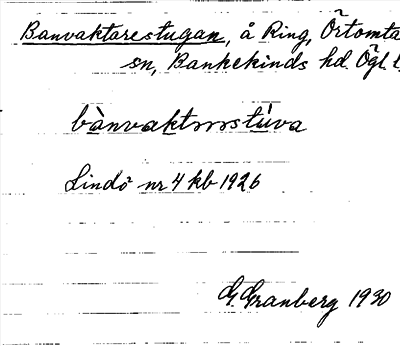 Banvaktarestugan, å Ring, Örtomta
sn, Bankekinds hd. Ögl. l.
bànvaktarstúva
Lindö nr 4 kb 1926
G. Granberg 1930